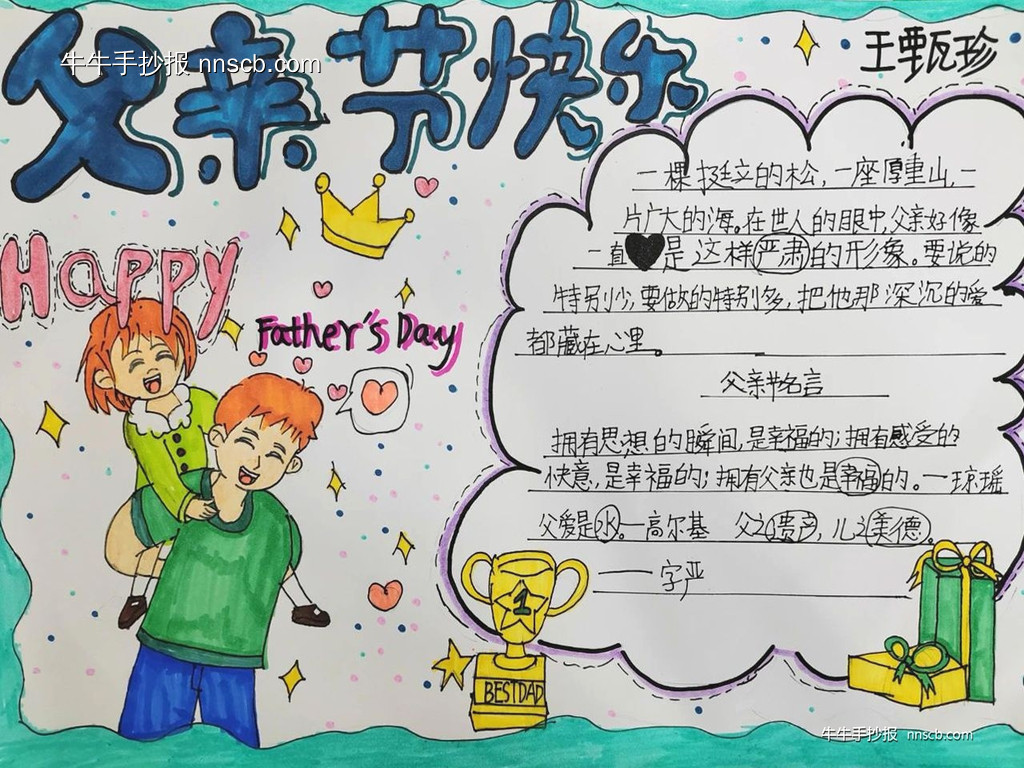 父亲节快乐
牛牛手抄报 nnscb.com
王甄珍
Happy
Father's Day
一棵挺立的松,一座厚重山,一
片广大的海。在世人的眼中,父亲好像
一直是这样严肃的形象。要说的
特别少,要做的特别多,把他那深沉的爱
都藏在心里。
父亲节名言
拥有思想的瞬间,是幸福的;拥有感受的
快意,是幸福的;拥有父亲也是幸福的。一琼瑶
父爱是水。一高尔基 父之遗产,儿之美德。
——字严
1
BESTDAD
牛牛手抄报 nnscb.com